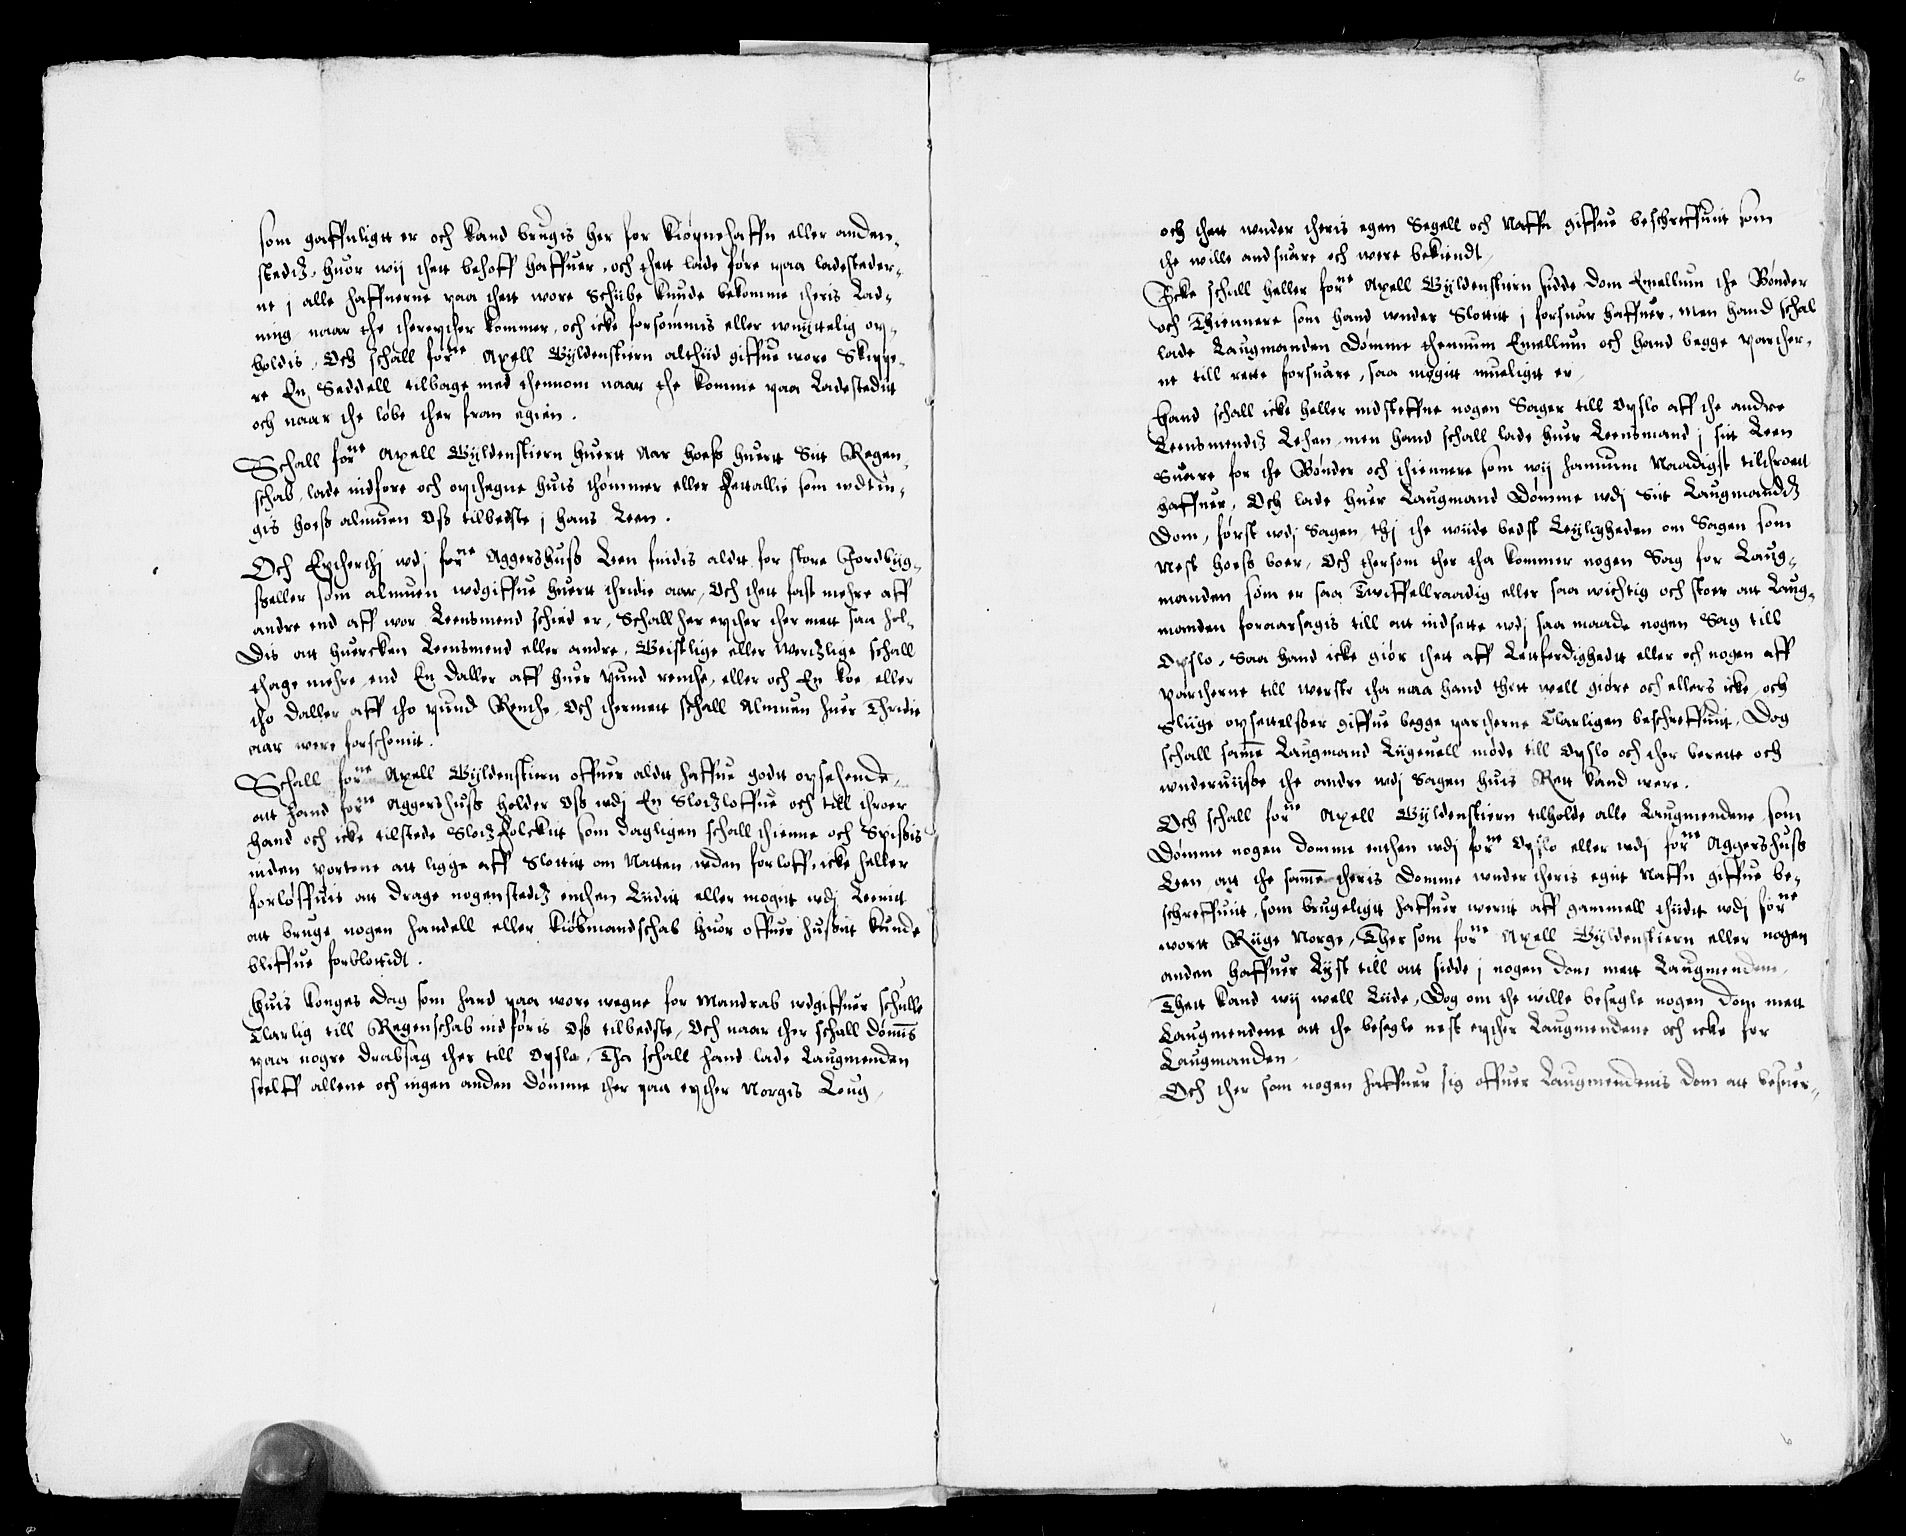 som gaffnligtt er och kand brugis her for Kiøpnehaffn eller anden-
stedtz, huor wij thett behoff haffuer, och thett lade føre paa ladesteder-
ne j alle haffnerne paa thett wore Schibe kunde bekomme theris Lad-
ning naar the therepther kommer, och icke forsømmis eller wnyttelig op-
holdis, Och schall forne Axell Gyldenstiern altthiid giffue wore Skippe-
re En Seddell tilbage med thennom naar the komme paa Ladestedit
och naar the løbe ther fran egien.
Schall forne Axell Gyldenstiern huertt Aar hoeß huertt Sitt Regen-
schab, lade indføre och opthegne huis thømmer eller Fettallie som wdtin-
gis hoeß almuen Oß tilbedste j hans Leen.
Och Eptherthj wdj forne Aggershuß Leen findis aldtt for store Jordbyg-
ßzeller som almuen wdgiffue huertt thridie aar, Och thett fast mehre aff
andre end aff wor Leensmend scheed er, Schall her epther ther mett saa hol-
dis att huercken Leensmend eller andre, Geistlige eller Werdzlige schall
thage mehre end En daller aff huer pund renthe, eller och En koe eller
tho daller aff tho pund Renthe, Och thermett schall Almuen huer Thridie
aar were forschonit.
Schall forne Axell Gyldenstiern offuer aldtt haffue godtt opsehende,
att hand forne Aggershuß holder Oß wdj En Slotzloffue och till throer
hand och icke tilstede Slotz folckitt som dagligen schall thienne och Spißis
inden portene att ligge aff Slottitt om Natten, uden forloff, icke heller
forløffuis att drage nogenstedtz enthen Lidett eller mögitt wdj Leenitt
att bruge nogen handell eller kiøbmandschab huor offuer hußitt kunde
bliffue forblottidt.
Huis konges Sag som hand paa wore wegne for Mandrab wdgiffuer schulle
Clarlig till Regenschab indføris Oß tilbedste, Och naar ther schall dømmis
paa nogre drabsag ther till Opslo, Tha schall hand lade Laugmenden
seelff allene och ingen anden dømme ther paa epther Norgis Loug,
6
och thett wnder theris egen Segell och Naffn giffue beschreffuitt som
the wille andsuare och were bekiendt,
Icke schall heller forne Axell Gyldenstiern sidde dom Emellum the Bønder
och Thiennere som hand wnder Slottitt j forsuar haffuer, men hand schal
lade Laugmanden dømme thennum Emellum och hand begge parther-
ne till rette forsuare, saa mögitt mueligtt er,
Hand schall icke heller indsteffne nogen Sager till Opslo aff the andre
Leensmendtz Lehen, men hand schall lade huer Leensmand j sitt Leen
Suare for the Bønder och thiennere som wij hannum Naadigst tilthroett
haffuer, Och lade huer Laugmand Dømme wdj Sitt Laugmandtz
Dom, først wdj Sagen, thj the wiide bedst Leyligheden om Sagen som
Nest hoeß boer, Och thersom ther tha kommer nogen Sag for Laug-
manden som er saa Twiffellraadig eller saa wichtig och stoer att Laug-
manden foraarsagis till att indsette wdj saa maade nogen Sag till
Opslo, Saa hand icke giør thett aff Lettferdighedtt eller och nogen aff
partherne till werste tha maa hand thett well giøre och ellers icke, och
Sliige opsettelßer giffue begge partherne Clarligen beschreffuitt, Dog
schall samme Laugmand Liigeuell møde till Opslo och ther berette och
wnderuiiße the andre wdj Sagen huis Rett kand were.
Och schall forne Axell Gyldenstiern tilholde alle Laugmendene, som
Dømme nogen domme enthen wdj forne Opslo eller wdj forne Aggershuß
Leen att the samme theris Domme wnder theris egitt Naffn giffue be-
schreffuitt, som brugeligtt haffuer werit aff gammell thiidtt wdj forne
wortt Riige Norge, Ther som forne Axell Gyldenstiern eller nogen
anden haffuer Lyst till att sidde j nogen dom mett Laugmendene,
Thett kand wij well Liide, Dog om the wille besegle nogen dom mett
Laugmendene att the besegle nest epther Laugmendene och icke for
Laugmanden,
Och ther som nogen haffuer sig offuer Laugmendenis dom att besuer-
6